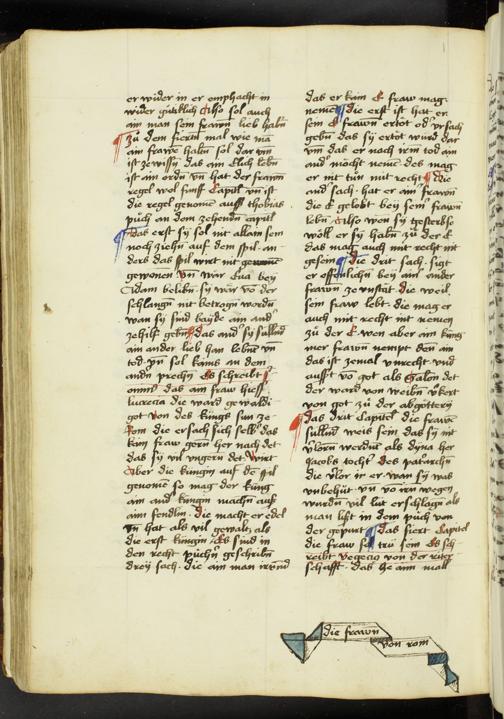 er wider in er emphacht in
wider gütklich Also sol auch
ain man sein frawen lieb habn
zü dem fiern mal wie ma
ain frawe habn sol dar vm
ist ze wissn das ain Elich lebn
ist ain ordn vn hat der frawn
regel wol funff Capitl vn ist
die regel genome auss thobias
püch an dem zehendn capitl
das erst sy sol nit allain sein
noch ziehn auf dem spil an
ders das spil wirt nit
gewonen vn wär Eua bey
Adam belibn sy wär vo der
schlangn nit betrogn wordn
wan sy sind bayde ain and
zehilf gebn das and sy sullnd
ain ander lieb han lebnt vn
tod vn sol kains an dem
andn prechn Es schreibt
das ain fraw hiess
lucrecia die ward gewaldi
got von des kings sun ze
Rom die ersach sich selb das
kain fraw gern her nach det
das sy vil vngern det wirt
Aber die küngin auf de spil
genome so mag der küng
ain and küngin machn auss
ain fendlin die macht er edel
vn hat als vil gewalz als
die erst küngin Es sind in
den recht püchn geschribn
drey sach die ain man irrend
das er kain E fraw mag
nemen die erst ist hat er
sein E frawn ertöt od vrsach
gebn das sy ertöt wurd dar
vm das er noch irm tod ain
and möcht nemen des mag
er nit tün mit recht die
and sach hat er ain frawn
die E gelobt bey seinr frawn
lebn Also wen sy gesterbe
wöll er sy habn zü der E
das mag auch mit recht nit
gesein die drit sach sigt
er offenlichn bey ain ander
frawn ze vnstät die weil
sein fraw lebt die mag er
auch mit recht nit nemen
zü der E wen aber ain küng
mer frawn nempt den ain
das ist zemal vnrecht vnd
ausst vo got als Salon det
der ward von weibn v̈kert
von got zü der abgöttery
das drit Capitel die frawe
sullnd weis sein das sy nit
v̈lorn werdnt als dyna her
Jacobs tocht des patriarchn
die v̈lor in er wan sy was
vnbehüt vn vo irn wegn
wurdn vil lüt erschlagn als
man list in dem püch von
der gepurt das fiert Capitel
die fraw sol trü sein Es sch
reibt vegecio von der riter
schafft das ze ainm mall
die frawn
von rom